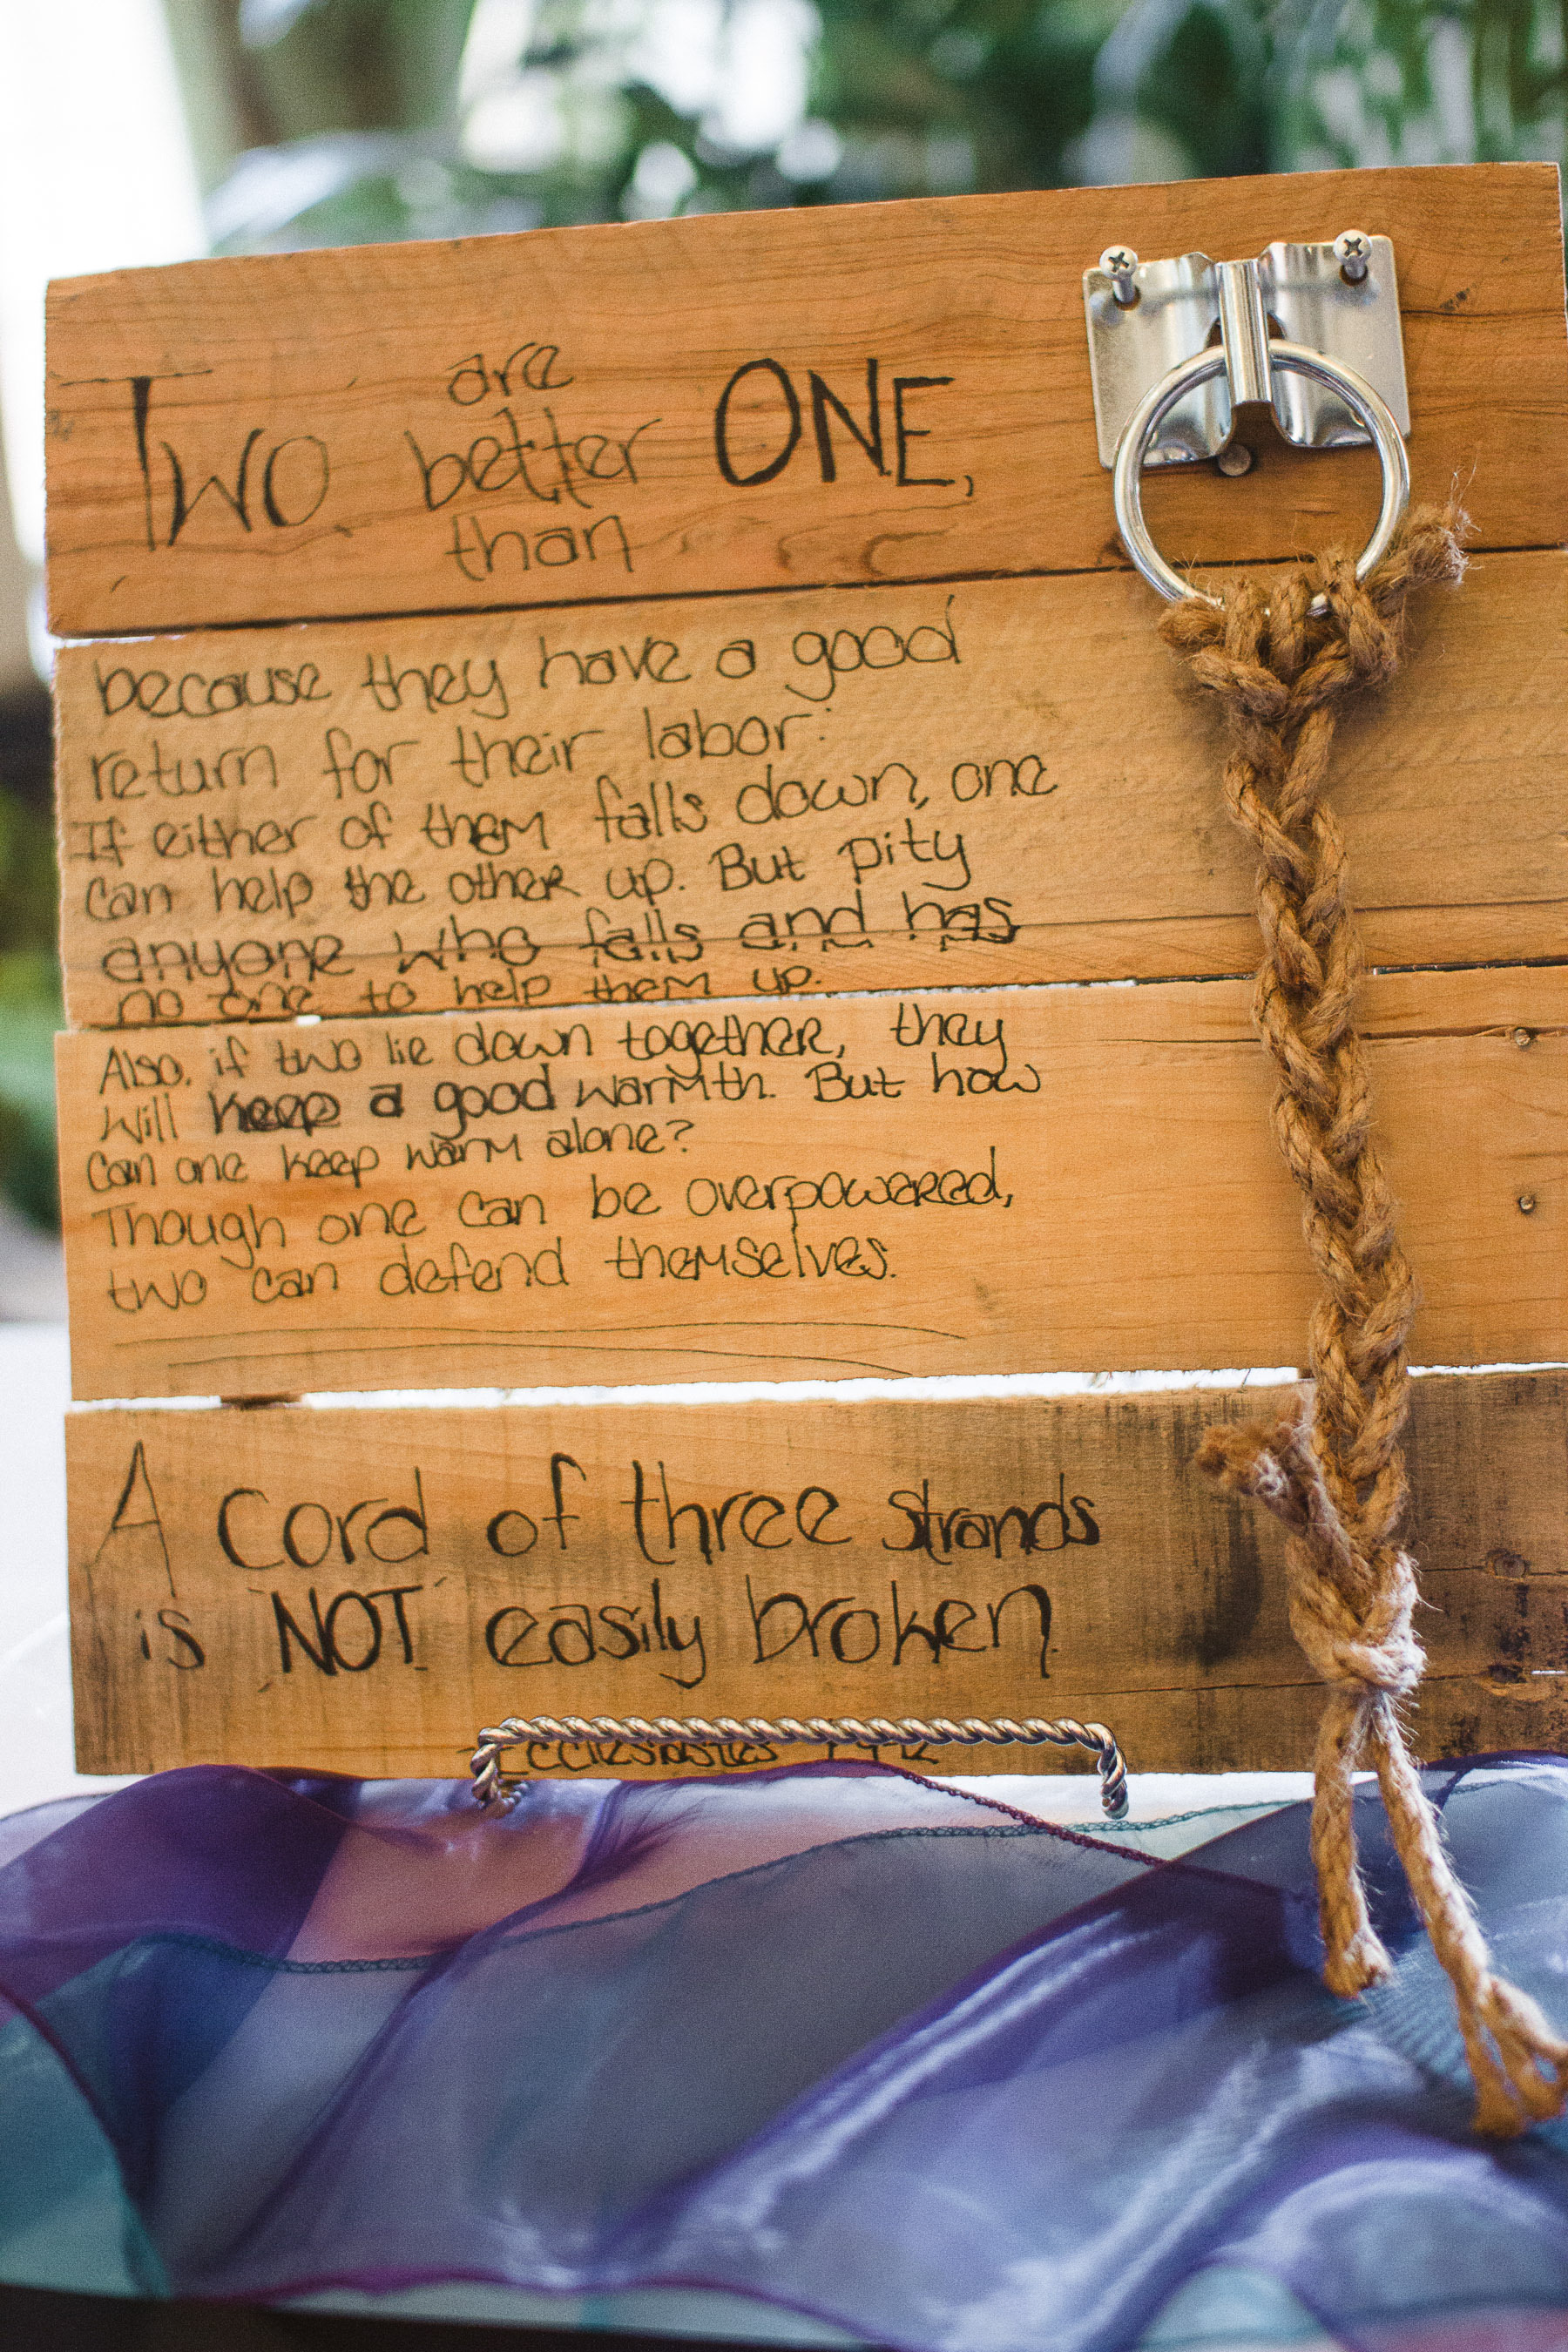 Two are better than ONE,
because they have a good
return for their labor:
If either of them falls down, one
can help the other up. But pity
anyone who falls and has
no one to help them up.
Also, if two lie down together, they
will keep a good warmth. But how
can one keep warm alone?
Though one can be overpowered,
two can defend themselves.
A cord of three strands
is NOT easily broken.
Ecclesiastes